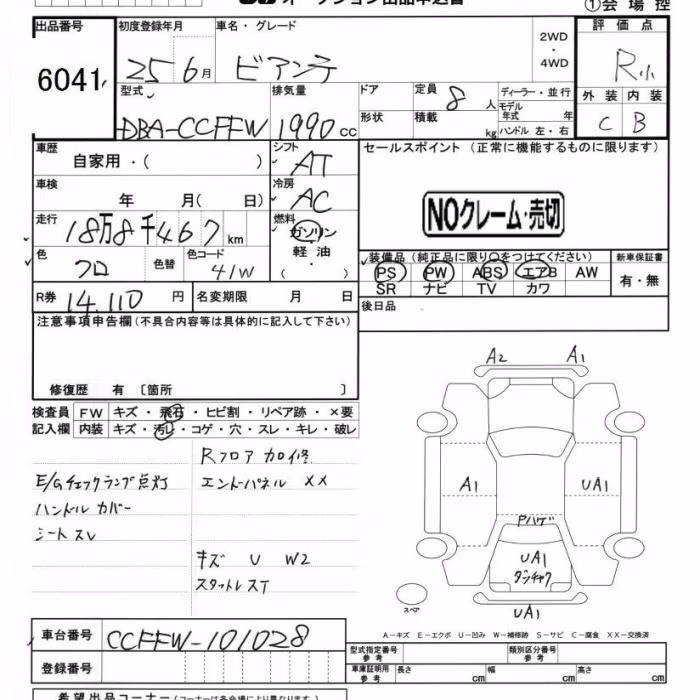 ①会場控
出品番号 6041
初度登録年月 25 6月
車名・グレード ビアンテ
2WD・4WD
評価点 R小
外装 内装
C B
型式 DBA-CCFFW
排気量 1990 cc
ドア
形状
定員 8 人
積載 kg
ディーラー・並行
モデル年式 年
ハンドル 左・右
車歴 自家用・( )
シフト AT
車検 年 月( 日)
冷房 AC
走行 18万8千467 km
燃料 ガソリン・軽油 ( ・ )
色 クロ 色替 色コード 41W
R券 14,110 円 名変期限 月 日
セールスポイント (正常に機能するものに限ります)
NOクレーム・売切
装備品 (純正品に限り○をつけてください)
PS PW ABS エアB AW
SR ナビ TV カワ
新車保証書 有・無
後日品
注意事項申告欄(不具合内容等は具体的に記入して下さい)
修復歴 有 〔箇所 〕
検査員記入欄
FW キズ・飛石・ヒビ割・リペア跡・×要
内装 キズ・汚レ・コゲ・穴・スレ・キレ・破レ
Rフロア カロ修
E/Gチェックランプ点灯 エンドパネル XX
ハンドル カバー
シート スレ
キズ U W2
スタットレスT
A2 A1
A1 UA1
Pハゲ
UA1
スペア
UA1
A-キズ E-エクボ U-凹み W-補修跡 S-サビ C-腐食 XX-交換済
車台番号 CCFFW-101028
登録番号
型式指定番号 参考 類別区分番号 参考
車庫証明用 参考 長さ cm 幅 cm 高さ cm
希望出品コーナー